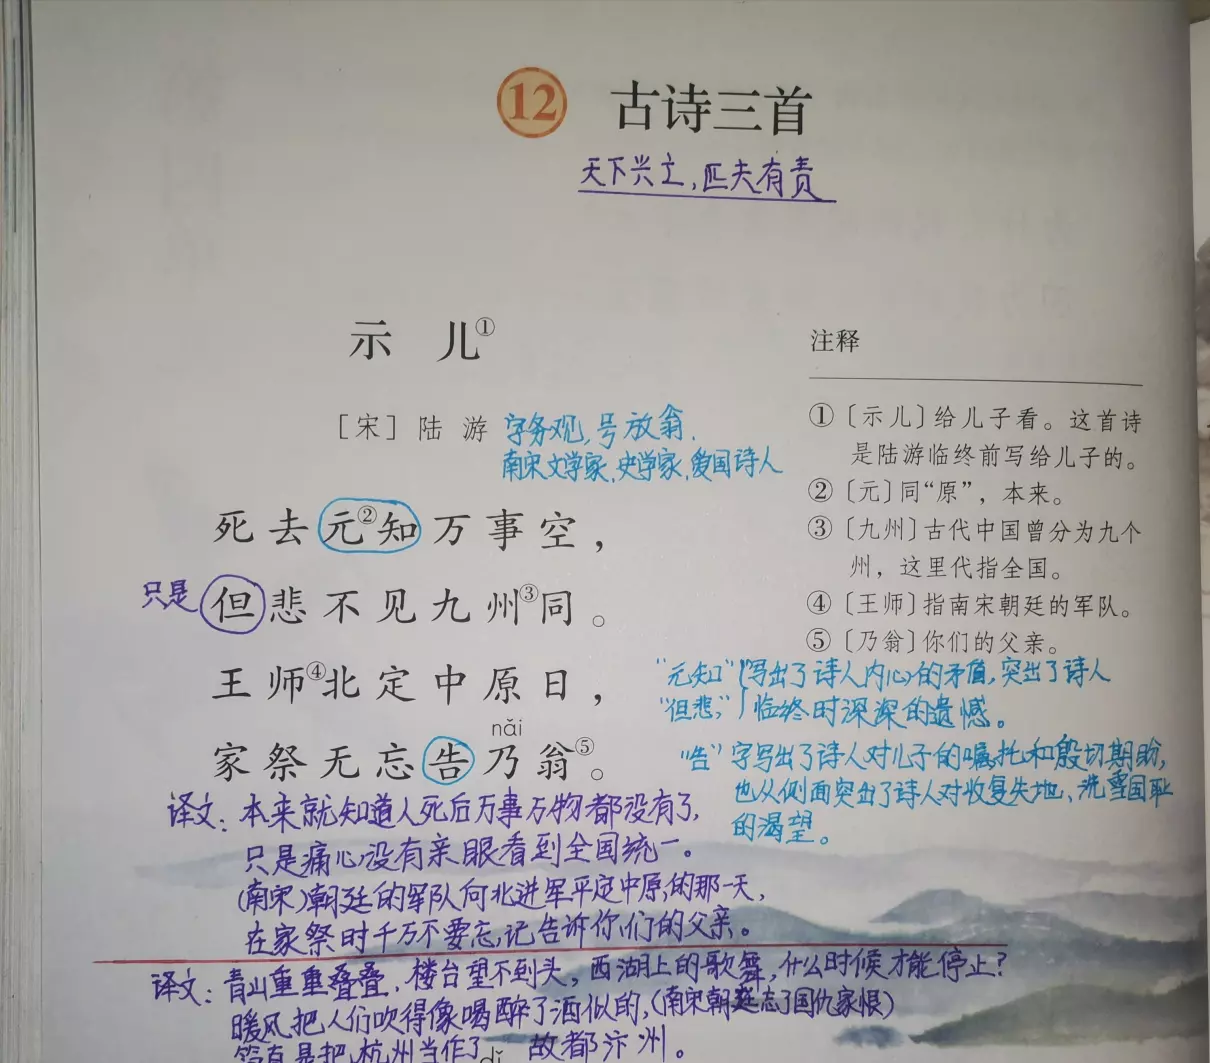 12 古诗三首
天下兴亡,匹夫有责
示 儿①
［宋］陆 游 字务观,号放翁.
南宋文学家,史学家,爱国诗人
死去元②知万事空，
只是 但悲不见九州③同。
王师④北定中原日，
nǎi
家祭无忘告乃翁⑤。
注释
①〔示儿〕给儿子看。这首诗
是陆游临终前写给儿子的。
②〔元〕同“原”，本来。
③〔九州〕古代中国曾分为九个
州，这里代指全国。
④〔王师〕指南宋朝廷的军队。
⑤〔乃翁〕你们的父亲。
“元知” 写出了诗人内心的矛盾,突出了诗人
“但悲” 临终时深深的遗憾。
“告”字写出了诗人对儿子的嘱托和殷切期盼,
也从侧面突出了诗人对收复失地、洗雪国耻
的渴望。
译文:本来就知道人死后万事万物都没有了,
只是痛心没有亲眼看到全国统一。
(南宋)朝廷的军队向北进军平定中原的那一天,
在家祭时千万不要忘记告诉你们的父亲。
译文:青山重重叠叠,楼台望不到头,西湖上的歌舞,什么时候才能停止?
暖风把人们吹得像喝醉了酒似的,(南宋朝廷忘了国仇家恨)
简直是把杭州当作了 故都汴州。
dǐ